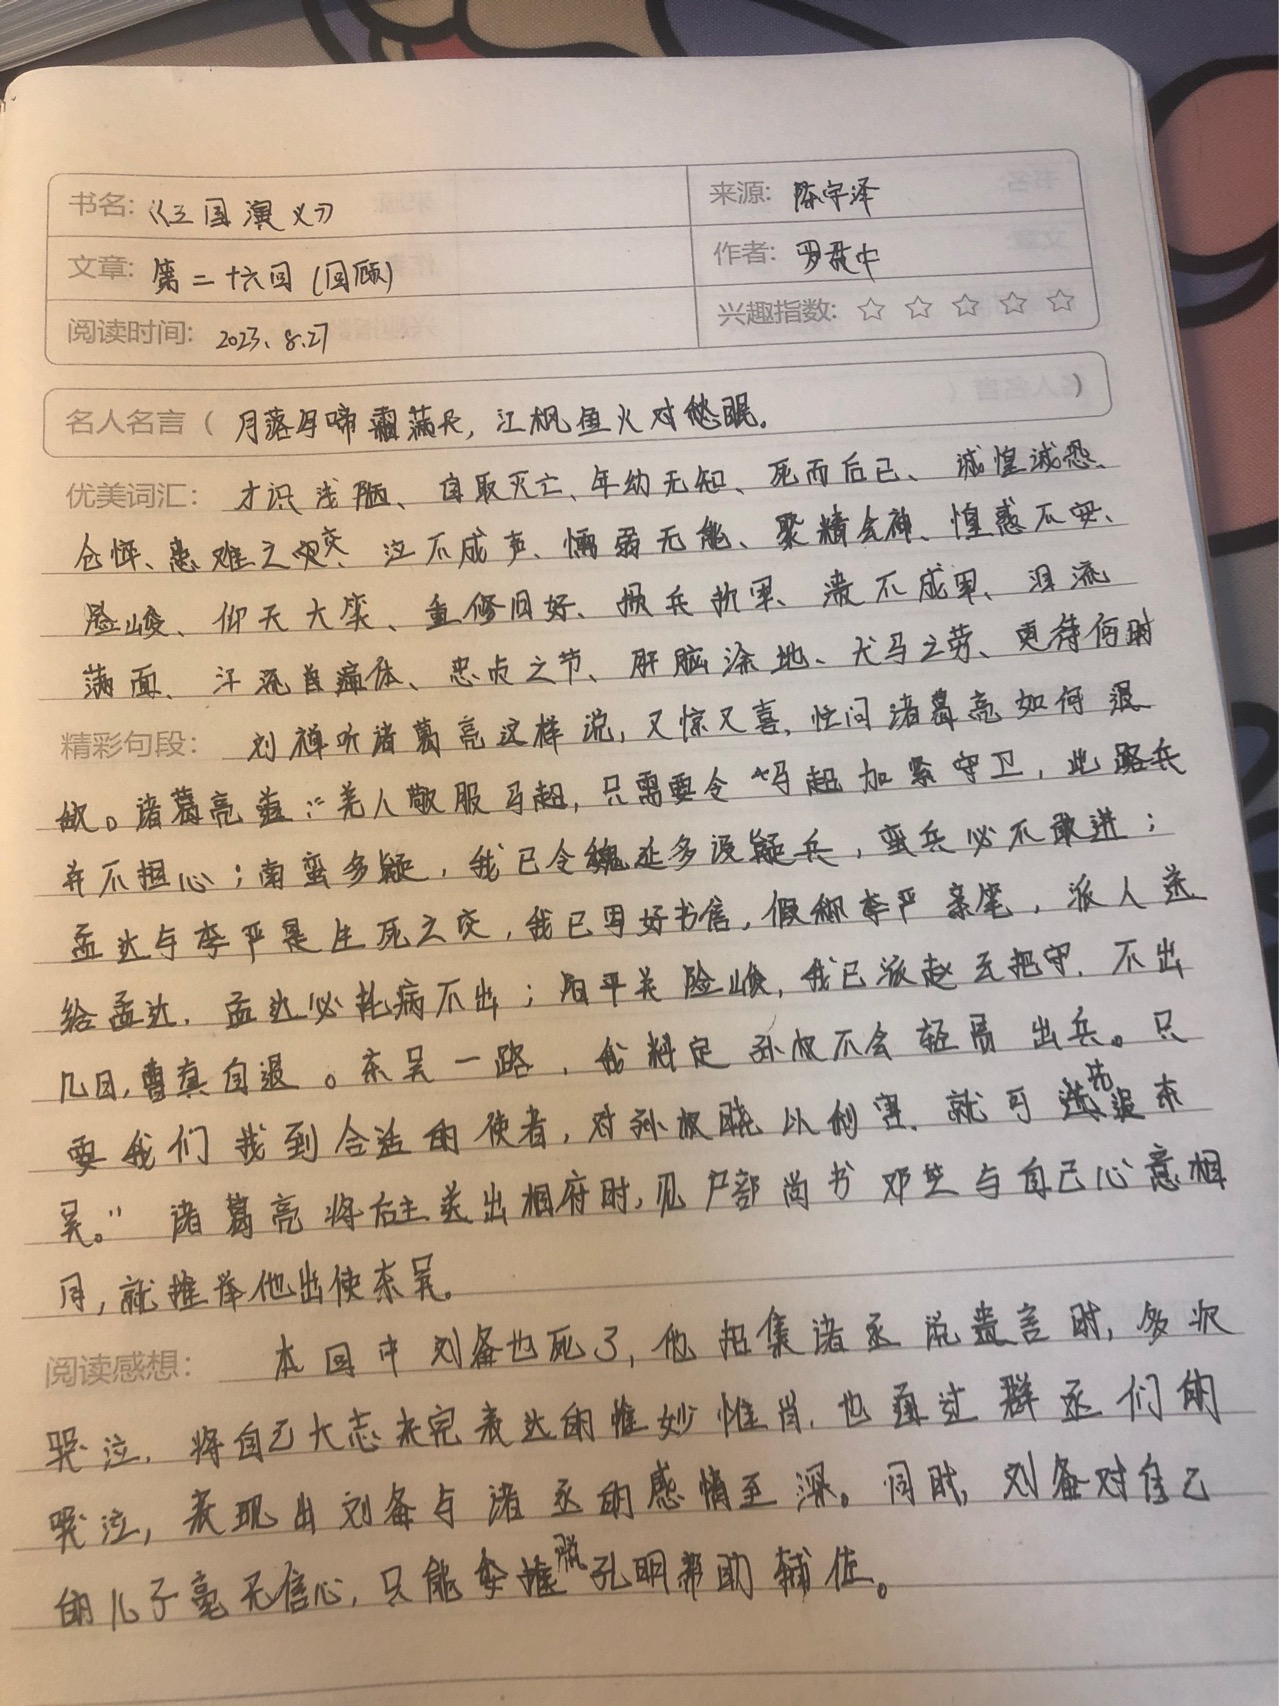 书名:《三国演义》
来源: 陈宇泽
文章: 第二十六回(回顾)
作者: 罗贯中
阅读时间: 2023.8.27
兴趣指数: ☆ ☆ ☆ ☆ ☆
名人名言( 月落乌啼霜满天,江枫鱼火对愁眠。 )
优美词汇: 才识浅陋、自取灭亡、年幼无知、死而后已、诚惶诚恐、
仓悴、患难之交、泣不成声、懦弱无能、聚精会神、惶惑不安、
险峻、仰天大笑、重修旧好、损兵折军、溃不成军、泪流
满面、汗流遍体、忠贞之节、肝脑涂地、犬马之劳、更待何时
精彩句段: 刘禅听诸葛亮这样说,又惊又喜,忙问诸葛亮如何退
敌。诸葛亮道:“羌人敬服马超,只需要令马超加紧守卫,此路兵
并不担心;南蛮多疑,我已令魏延多设疑兵,蛮兵必不敢进;
孟达与李严是生死之交,我已写好书信,假称李严亲笔,派人送
给孟达,孟达必托病不出;阳平关险峻,我已派赵云把守,不出
几日,曹真自退。东吴一路,我料定孙权不会轻易出兵。只
要我们找到合适的使者,对孙权晓以利害,就可先退东
吴。” 诸葛亮将后主送出相府时,见户部尚书邓芝与自己心意相
同,就推举他出使东吴。
阅读感想: 本回中刘备也死了,他招集诸丞说遗言时,多次
哭泣,将自己大志未完表达的惟妙惟肖,也通过群丞们的
哭泣,表现出刘备与诸丞的感情至深。同时,刘备对自己
的儿子毫无信心,只能孔明帮助辅佐。